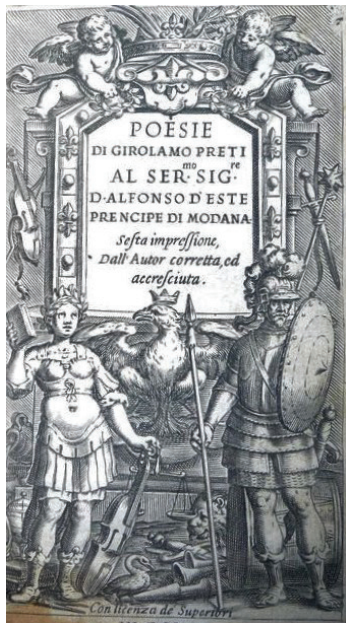 POESIE
DI GIROLAMO PRETI
AL SER.mo SIG.re
D. ALFONSO D'ESTE
PRENCIPE DI MODANA.
Sesta impressione,
Dall' Autor corretta, ed
accresciuta.
Con licenza de Superiori